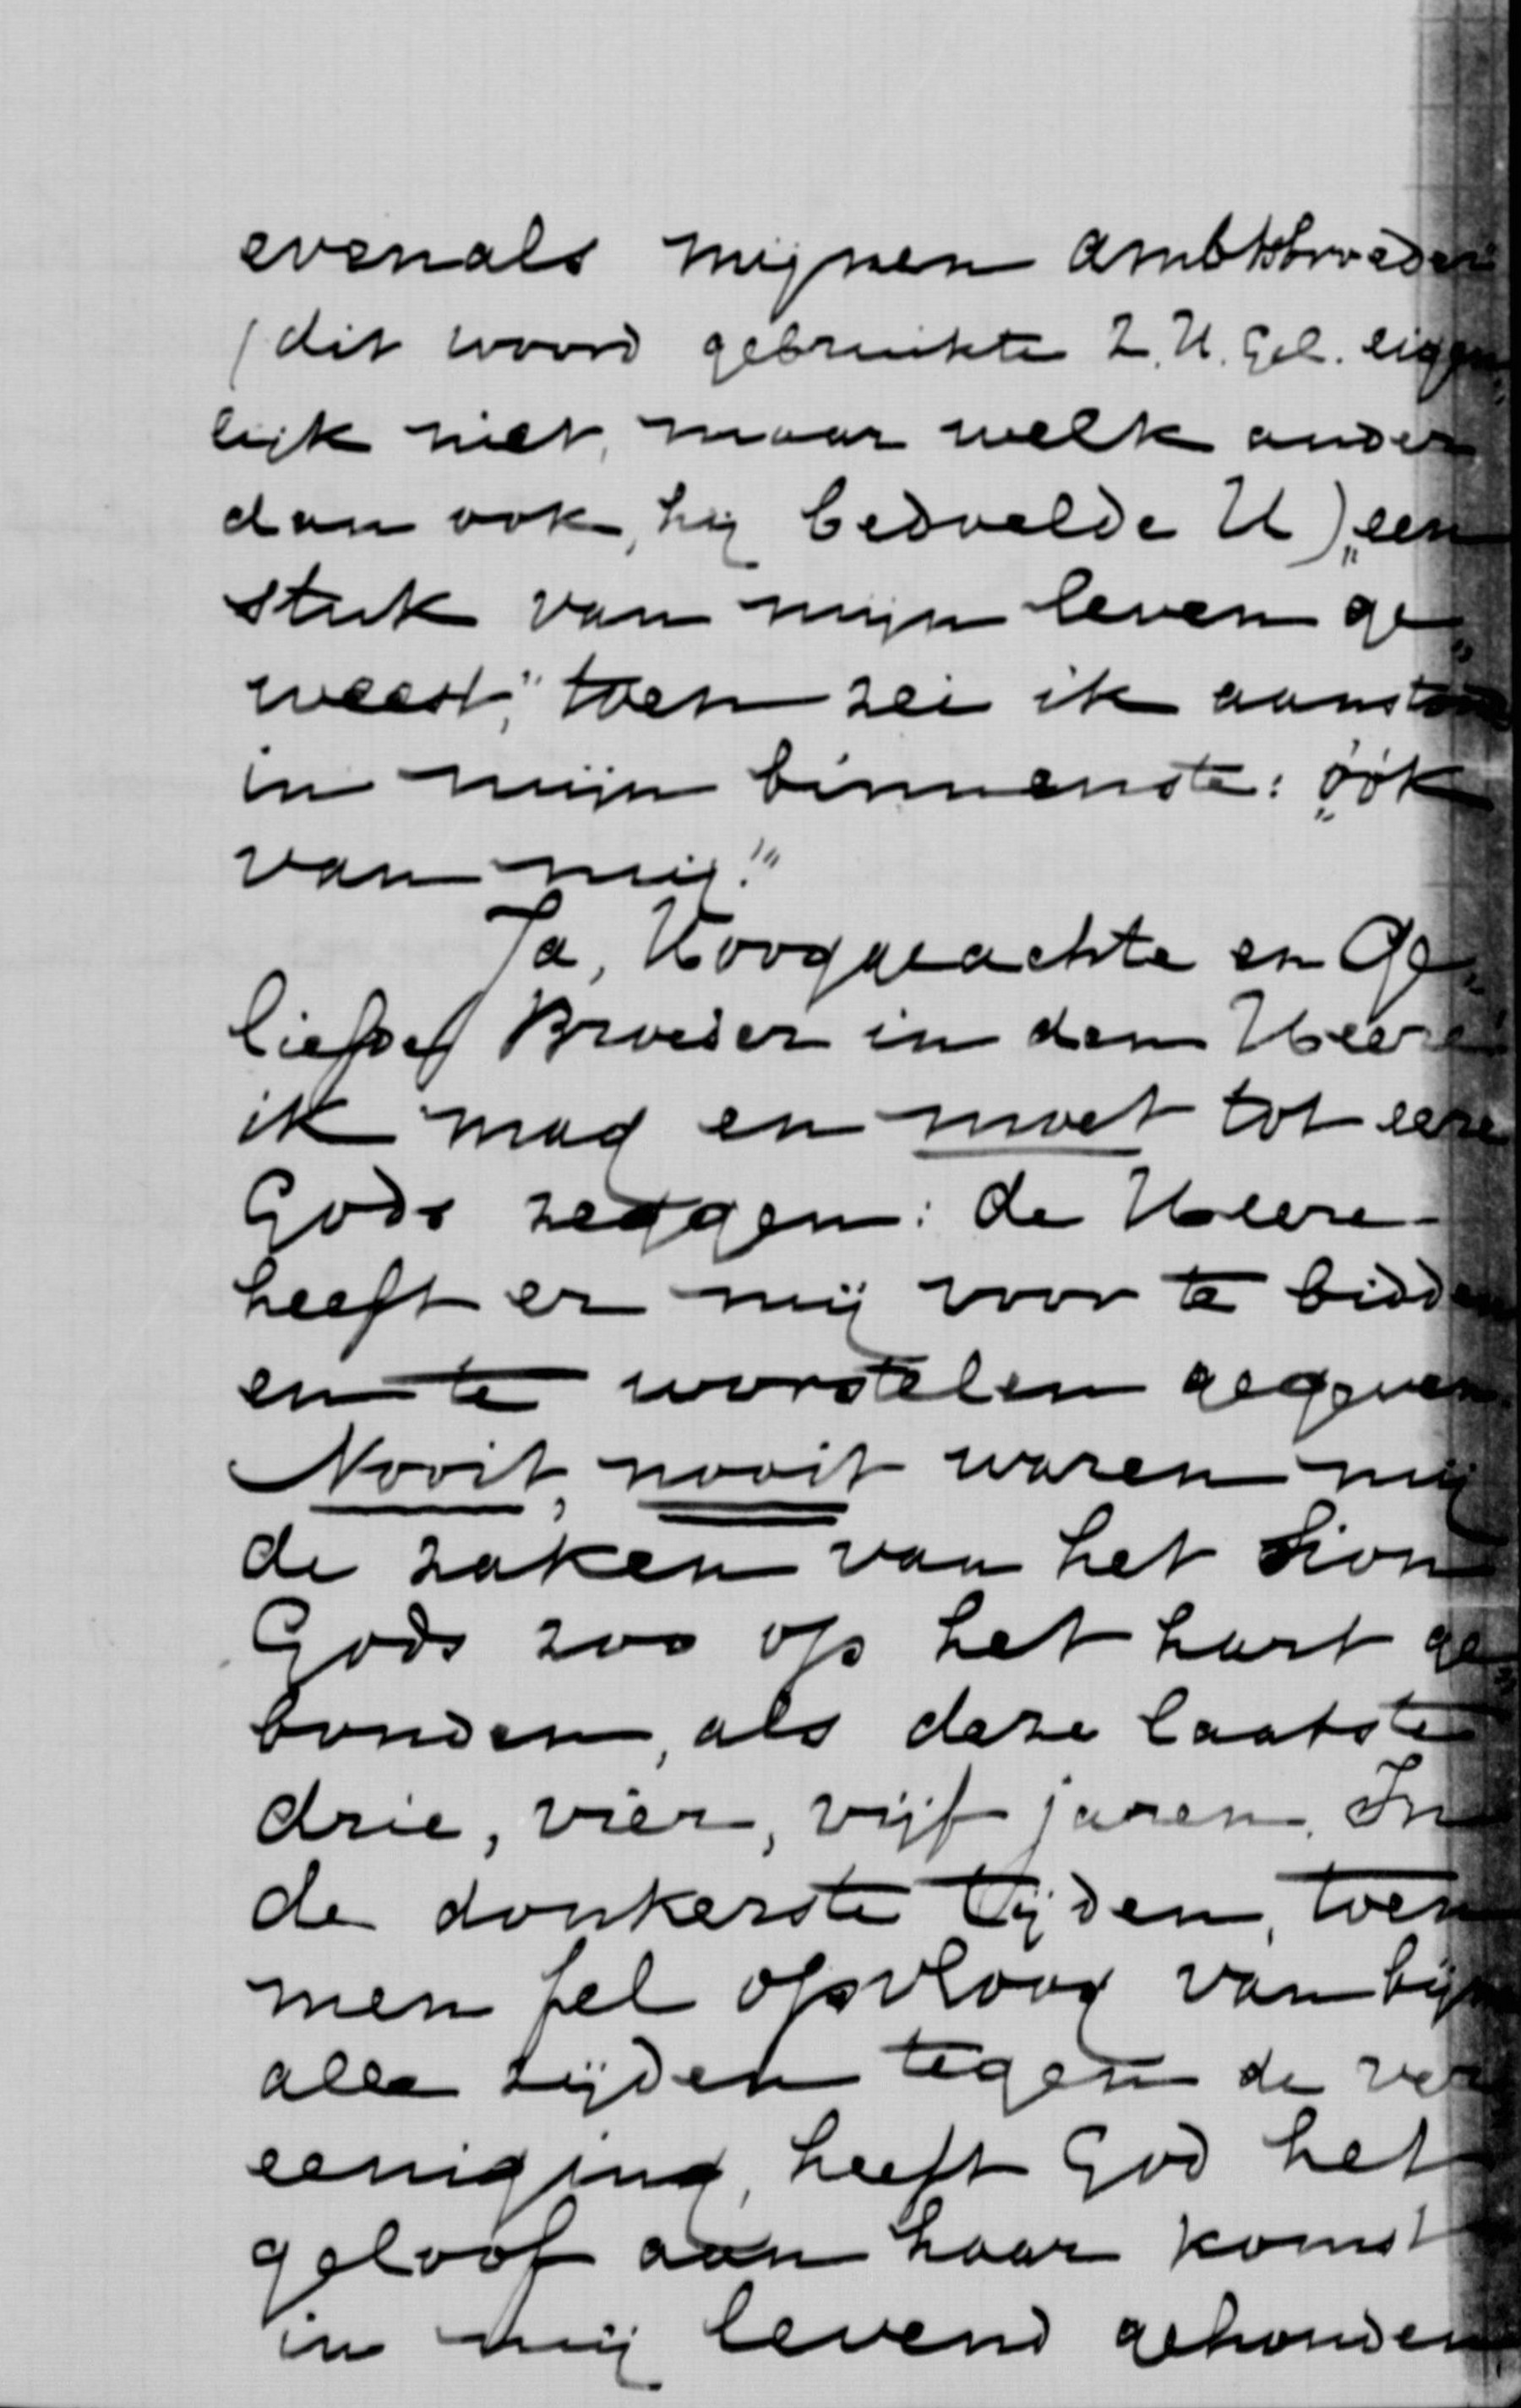 evenals mijnen ambtsbroeder
(dit woord gebruikte Z.H.Gel. eigen„
lijk niet, maar welk ander
dan ook, hij bedoelde U) „een
stuk van mijn leven ge„
weest," toen zei ik aanstonds
in mijn binnenste: „óók
van mij!"
Ja, Hooggeachte en Ge„
liefde Broeder in den Heere
ik mag en moet tot eere
Gods zeggen: de Heere
heeft er mij voor te bidden
en te worstelen gegeven.
Nooit, nooit waren mij
de zaken van het Sion
Gods zoo op het hart ge„
bonden, als deze laatste
drie, vier, vijf jaren. In
de donkerste tijden, toen
men fel opvloog van bijna
alle zijden tegen de ver„
eeniging, heeft God het
geloof aan haar komst
in mij levend gehouden